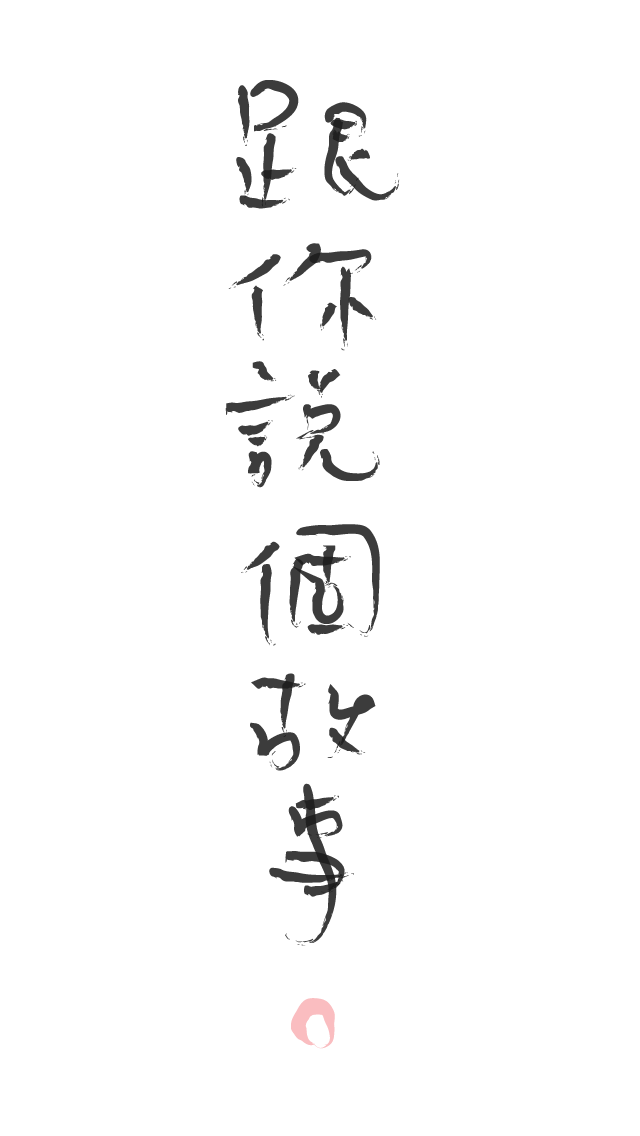 跟你說個故事